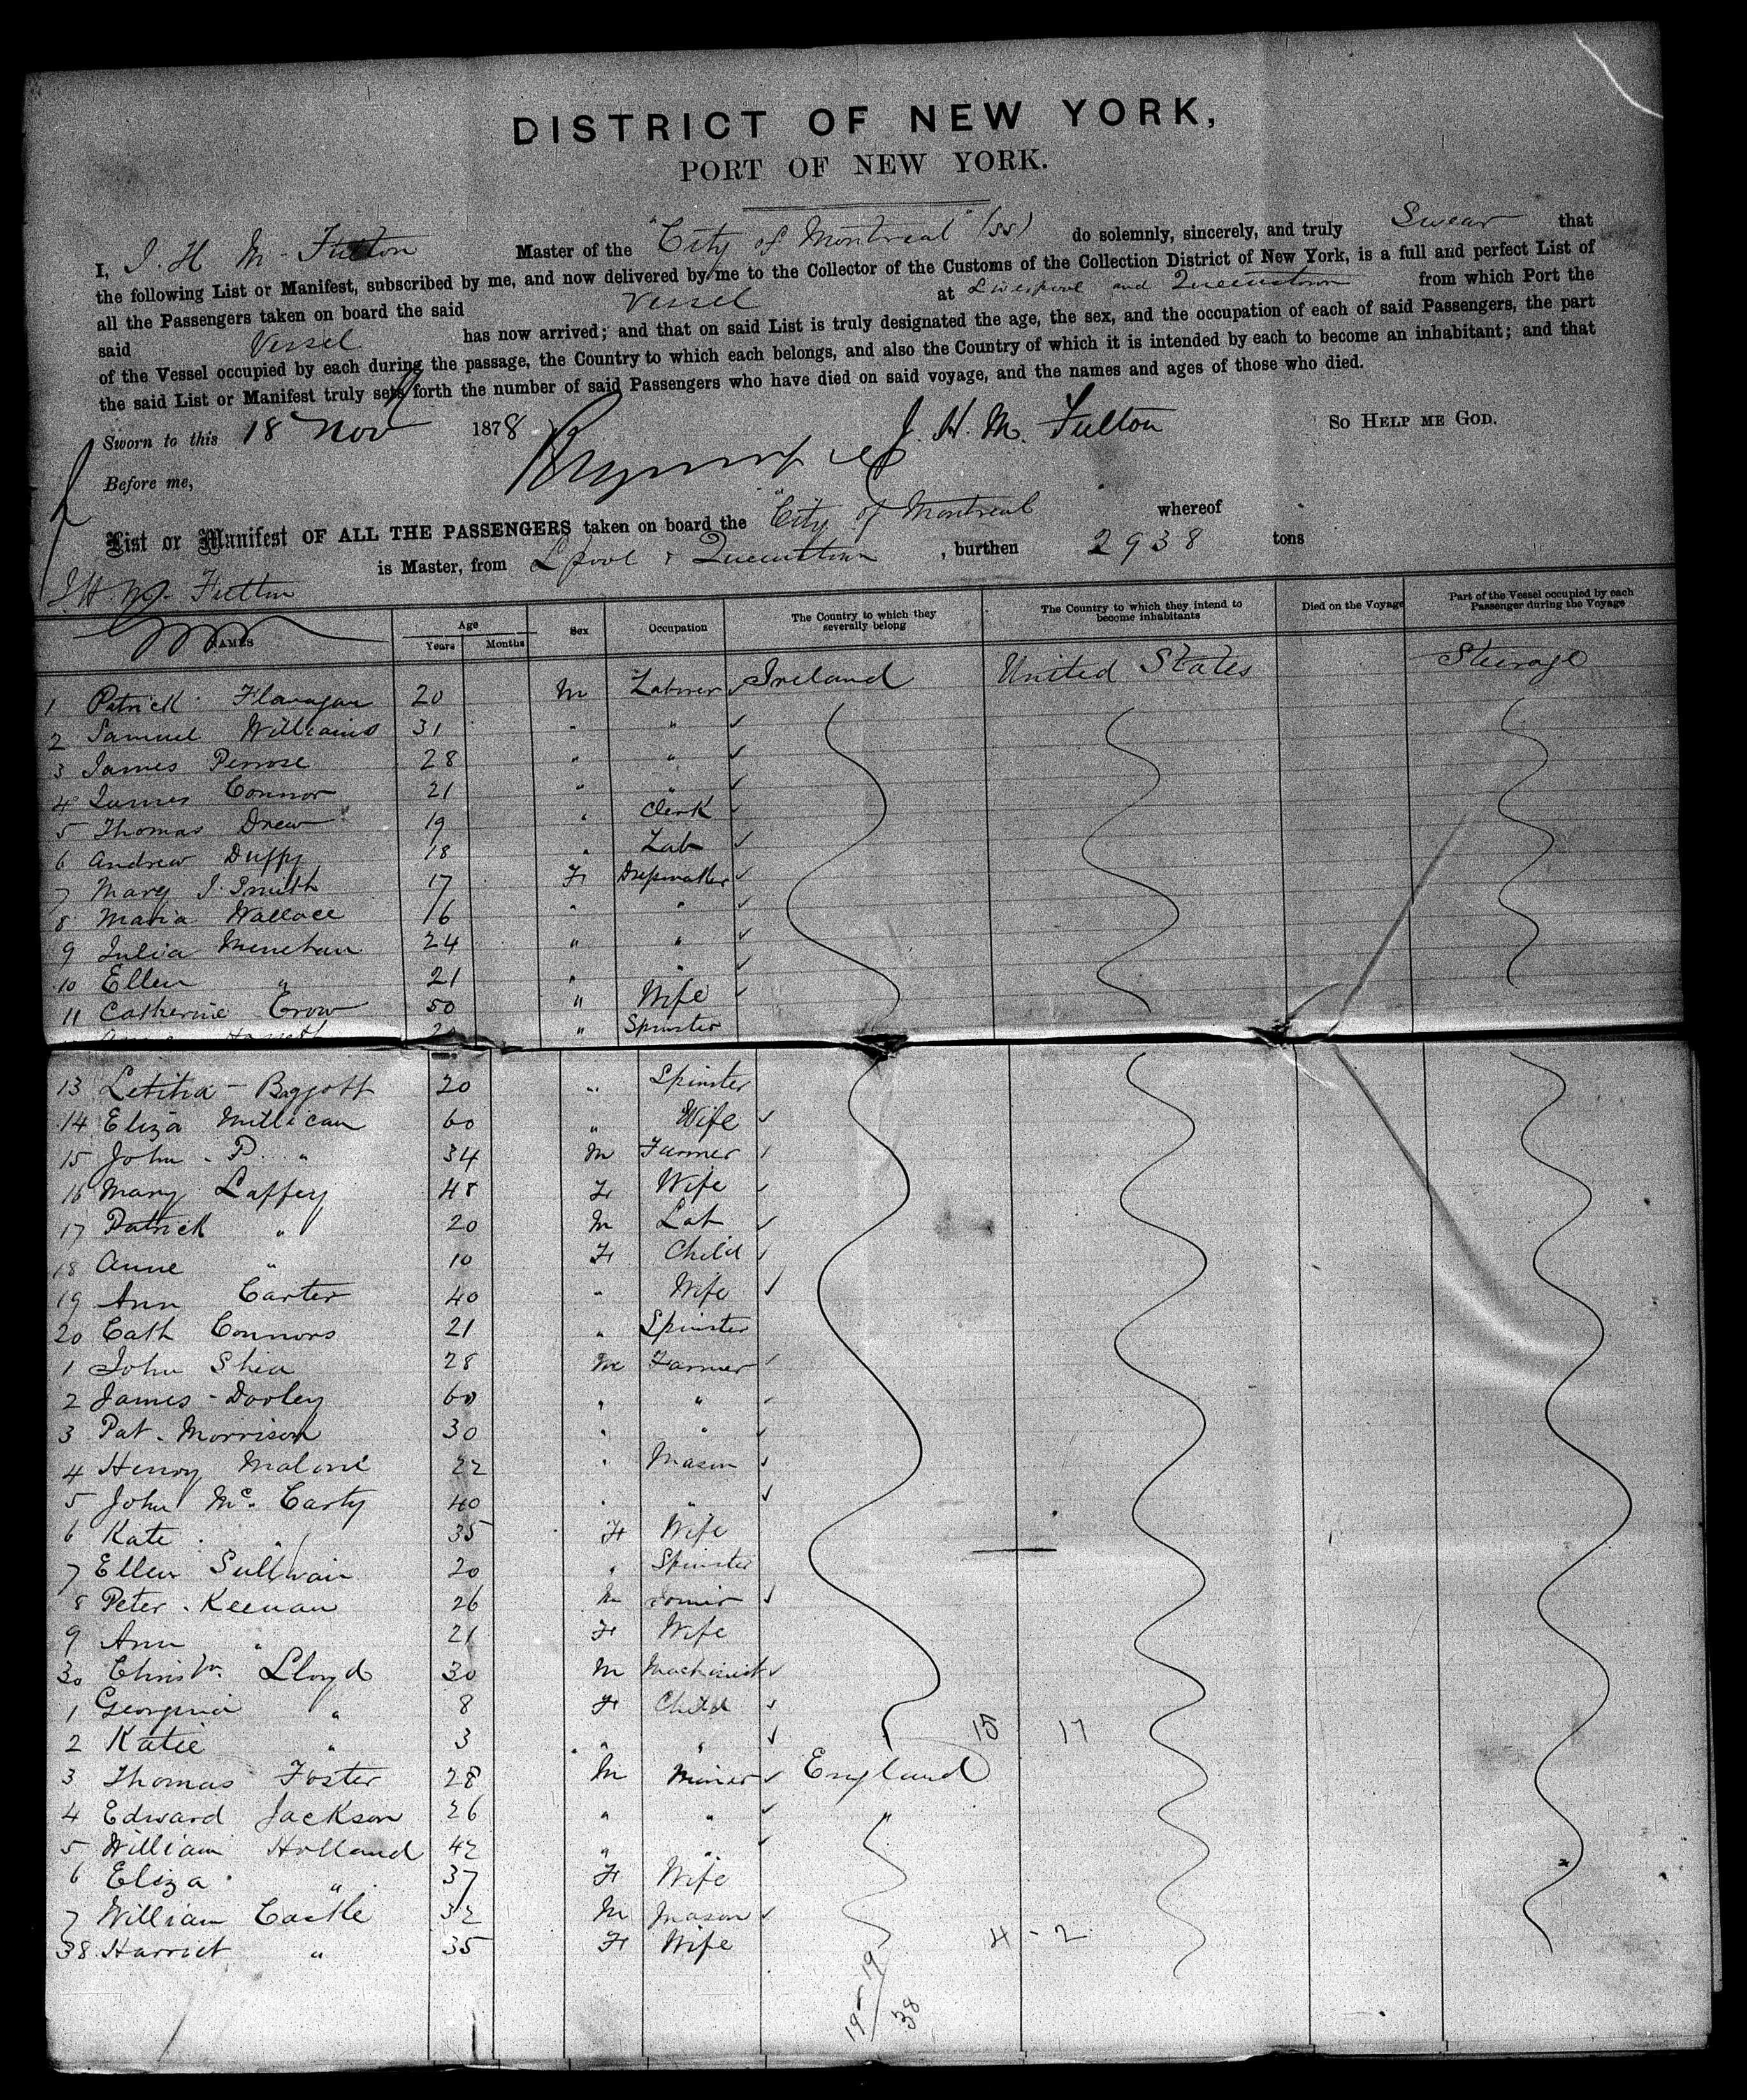 DISTRICT OF NEW YORK,
PORT OF NEW YORK.
I, J. H. M. Fulton Master of the "City of Montreal" (SS) do solemnly, sincerely, and truly Swear that
the following List or Manifest, subscribed by me, and now delivered by me to the Collector of the Customs of the Collection District of New York, is a full and perfect List of
all the Passengers taken on board the said Vessel at Liverpool and Queenstown from which Port the
said Vessel has now arrived; and that on said List is truly designated the age, the sex, and the occupation of each of said Passengers, the part
of the Vessel occupied by each during the passage, the Country to which each belongs, and also the Country of which it is intended by each to become an inhabitant; and that
the said List or Manifest truly sets forth the number of said Passengers who have died on said voyage, and the names and ages of those who died.
Sworn to this 18 Nov 1878 J. H. M. Fulton SO HELP ME GOD.
Before me,
List or Manifest OF ALL THE PASSENGERS taken on board the "City of Montreal whereof
J. H. M. Fulton is Master, from Lpool & Queenstown, burthen 2938 tons
NAMES Age Years Months Sex Occupation The Country to which they severally belong The Country to which they intend to become inhabitants Died on the Voyage Part of the Vessel occupied by each Passenger during the Voyage
1 Patrick Flanagan 20 M Laborer Ireland United States Steerage
2 Samuel Williams 31 " "
3 James Penrose 28 " "
4 James Connor 21 " "
5 Thomas Drew 19 " Clerk
6 Andrew Duffy 18 " Lab
7 Mary J. Smith 17 F Dressmaker
8 Maria Wallace 16 " "
9 Julia Menehan 24 " "
10 Ellen " 21 " "
11 Catherine Crow 50 " Wife
20 " Spinster
13 Letitia - Baggott 20 " Spinster
14 Eliza Millican 60 " Wife
15 John - P. " 34 M Farmer
16 Mary Laffey 48 F Wife
17 Patrick " 20 M Lab
18 Anne " 10 F Child
19 Ann Carter 40 " Wife
20 Cath Connors 21 " Spinster
1 John Shea 28 M Farmer
2 James - Dooley 60 " "
3 Pat - Morrison 30 " "
4 Henry Malone 22 " Mason
5 John Mc. Carty 40 " "
6 Kate " 35 F Wife
7 Ellen Sullivan 20 " Spinster
8 Peter - Keenan 26 M
9 Ann " 21 F Wife
30 Christr. Lloyd 30 M Machinist
1 Georgina " 8 F Child
2 Katie " 3 " " 15 17
3 Thomas Foster 28 M Miner England
4 Edward Jackson 26 " "
5 William Holland 42 " "
6 Eliza " 37 F Wife
7 William Castle 32 M Mason
38 Harriet " 35 F Wife 4 - 2
19 19
38